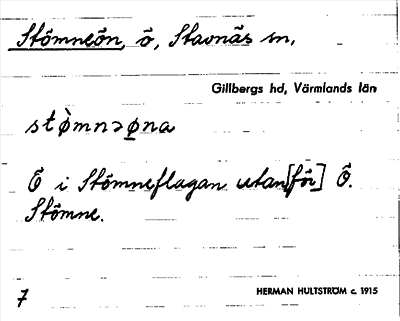 Stömneön, ö, Stavnäs sn,
Gillbergs hd, Värmlands län
stò̰mnəo̰na
Ö i Stömneflagan utan[för] Ö.
Stömne.
7 HERMAN HULTSTRÖM c. 1915